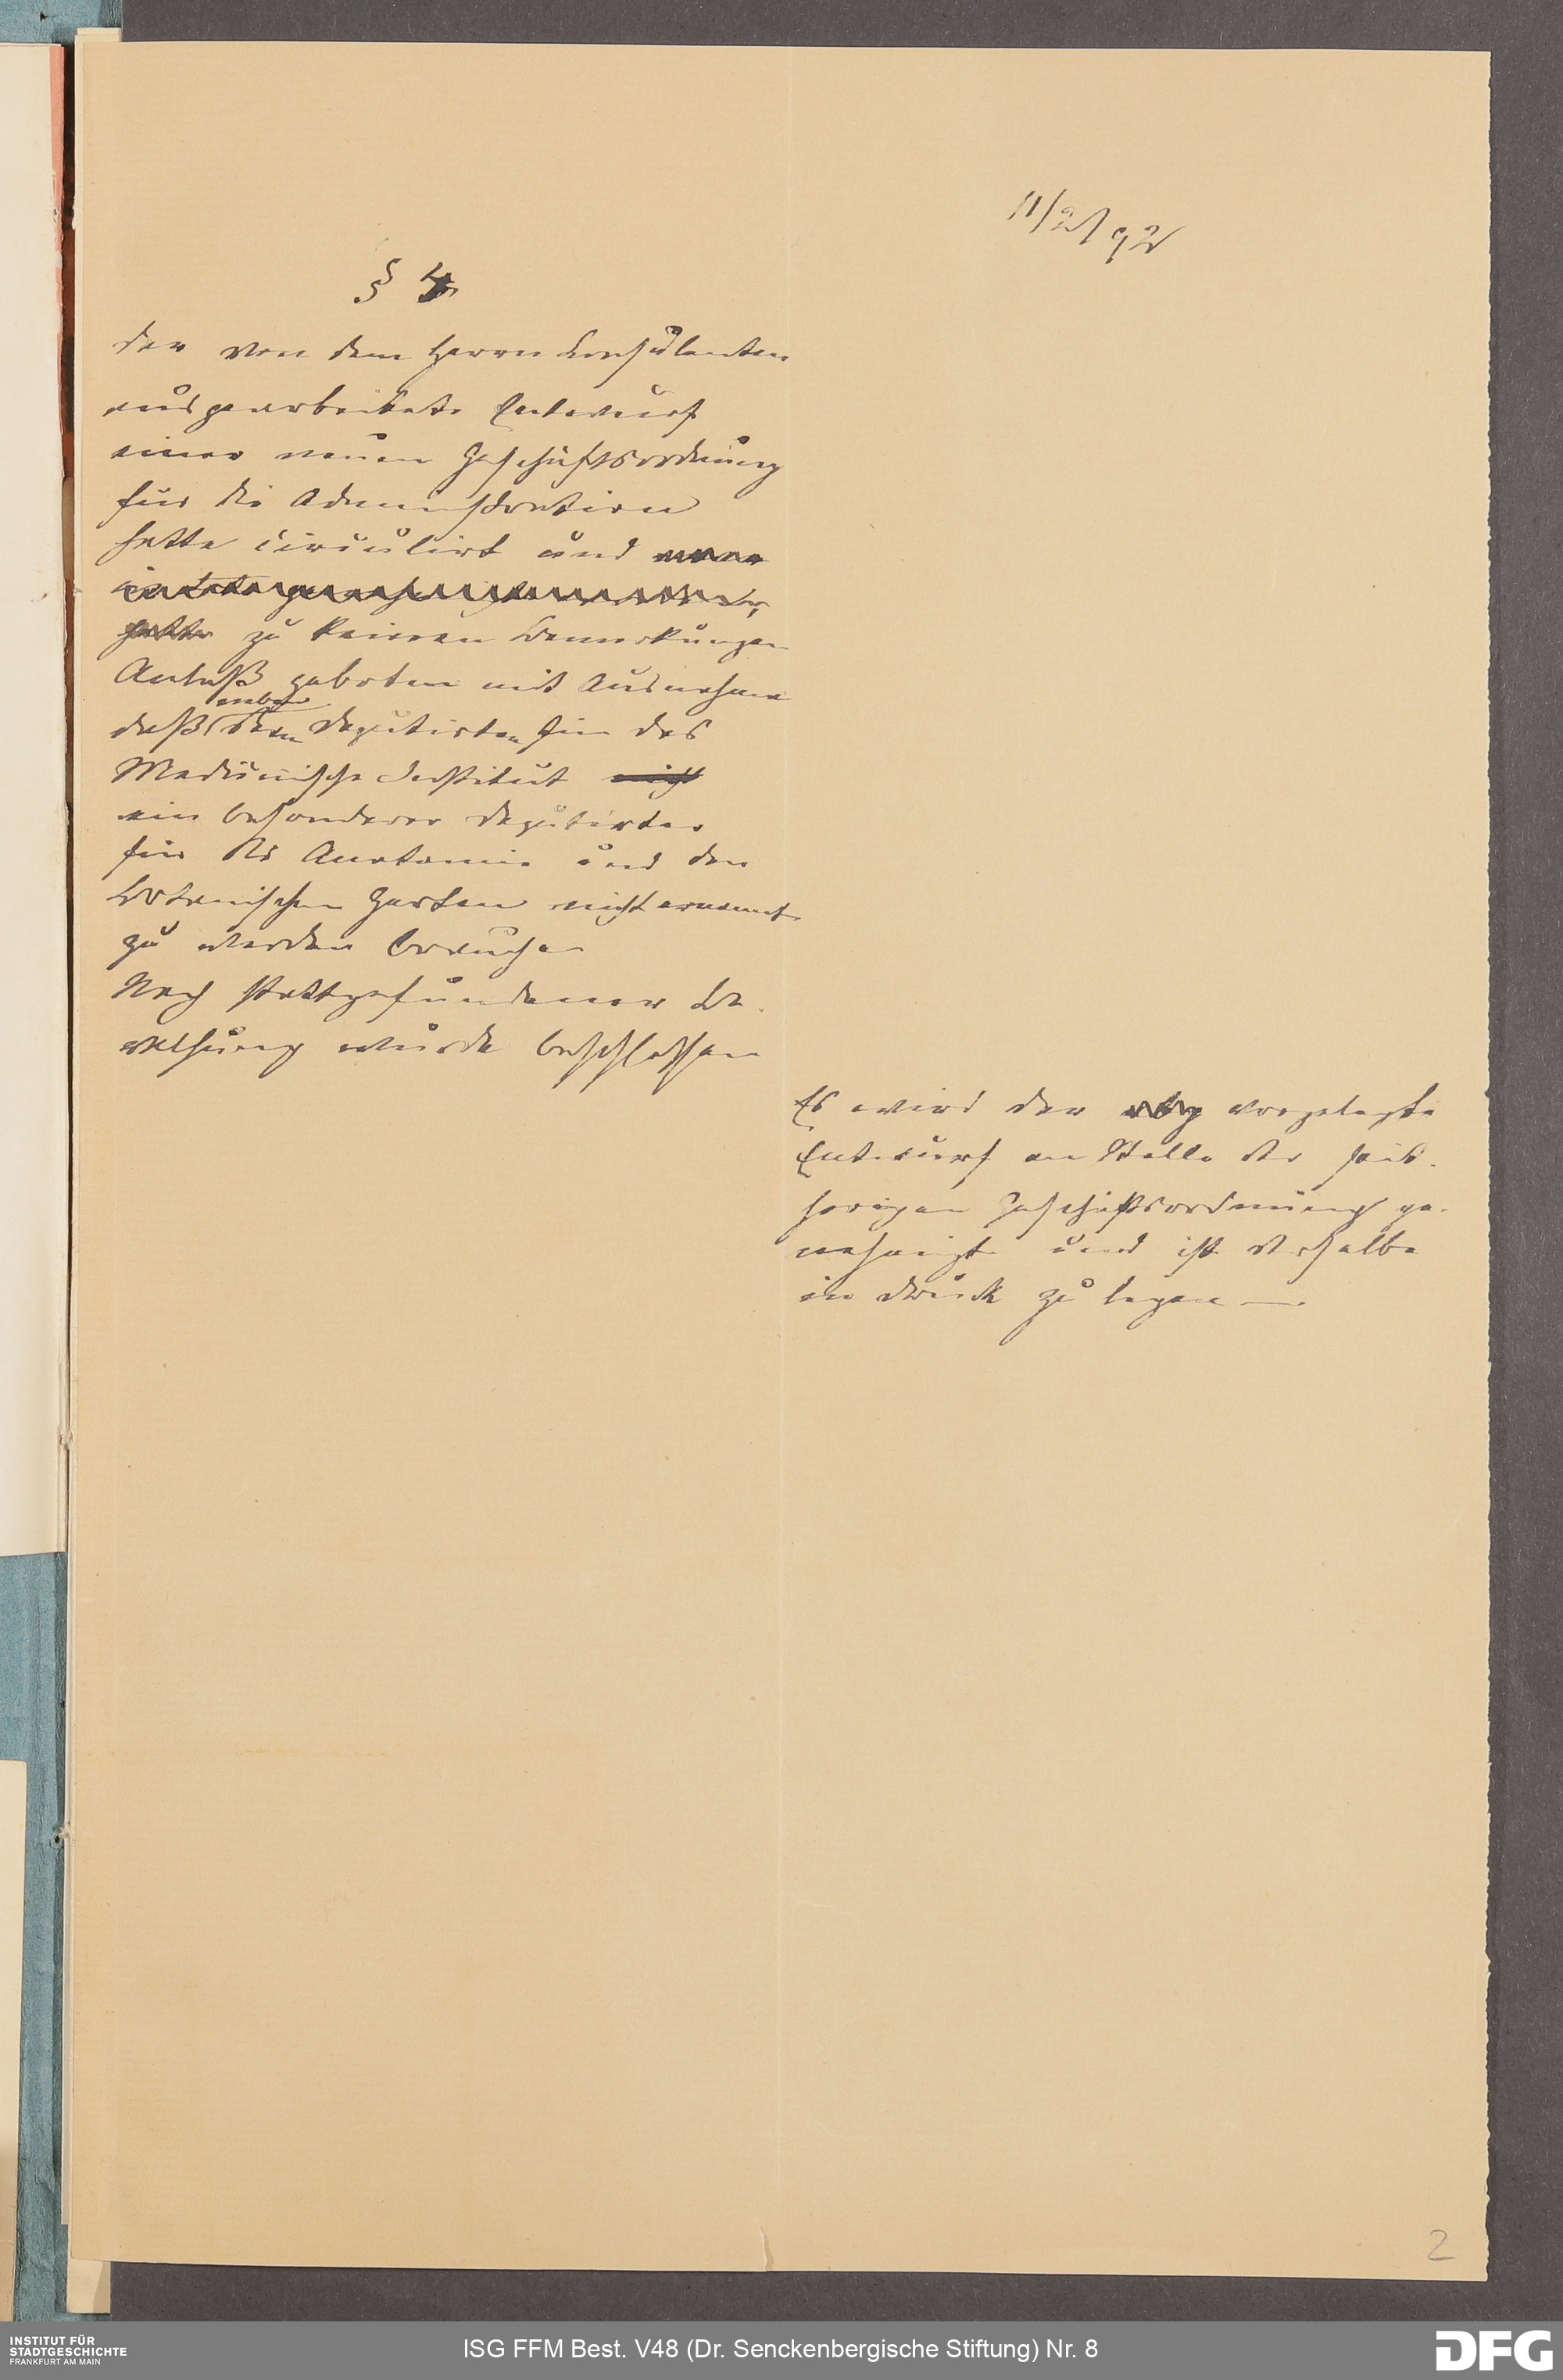 11/2/92
§ 4
Der von dem Herrn Consulenten
ausgearbeitete Entwurf
einer neuen Geschäftsordnung
für die Administration
hatte circulirt und
hatte zu keinen Bemerkungen
Anlaß geboten mit Ausnahme
neben
daß dem Deputirten für das
Medicinische Institut nicht
ein besonderer Deputirter
für die Anatomie und den
botanischen Garten nicht ernannt
zu werden brauche
Nach stattgefundener Be-
rathung wurde beschlossen
Es wird der vorgelegte
Entwurf an Stelle der seit-
herigen Geschäftsordnung ge-
nehmigt und ist derselbe
in Druck zu legen —.
2
INSTITUT FÜR
STADTGESCHICHTE
FRANKFURT AM MAIN
ISG FFM Best. V48 (Dr. Senckenbergische Stiftung) Nr. 8
DFG